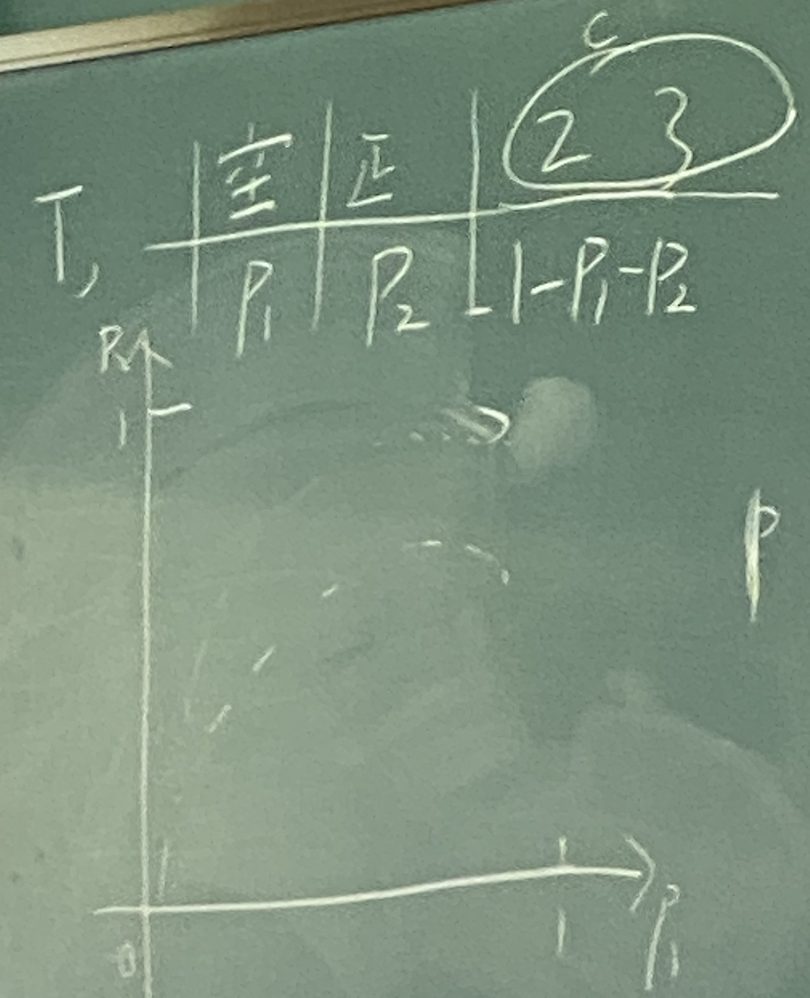 C
T, 空 正 2 3
P₁ P₂ 1-P₁-P₂
P₂
1
P
0 1 P₁